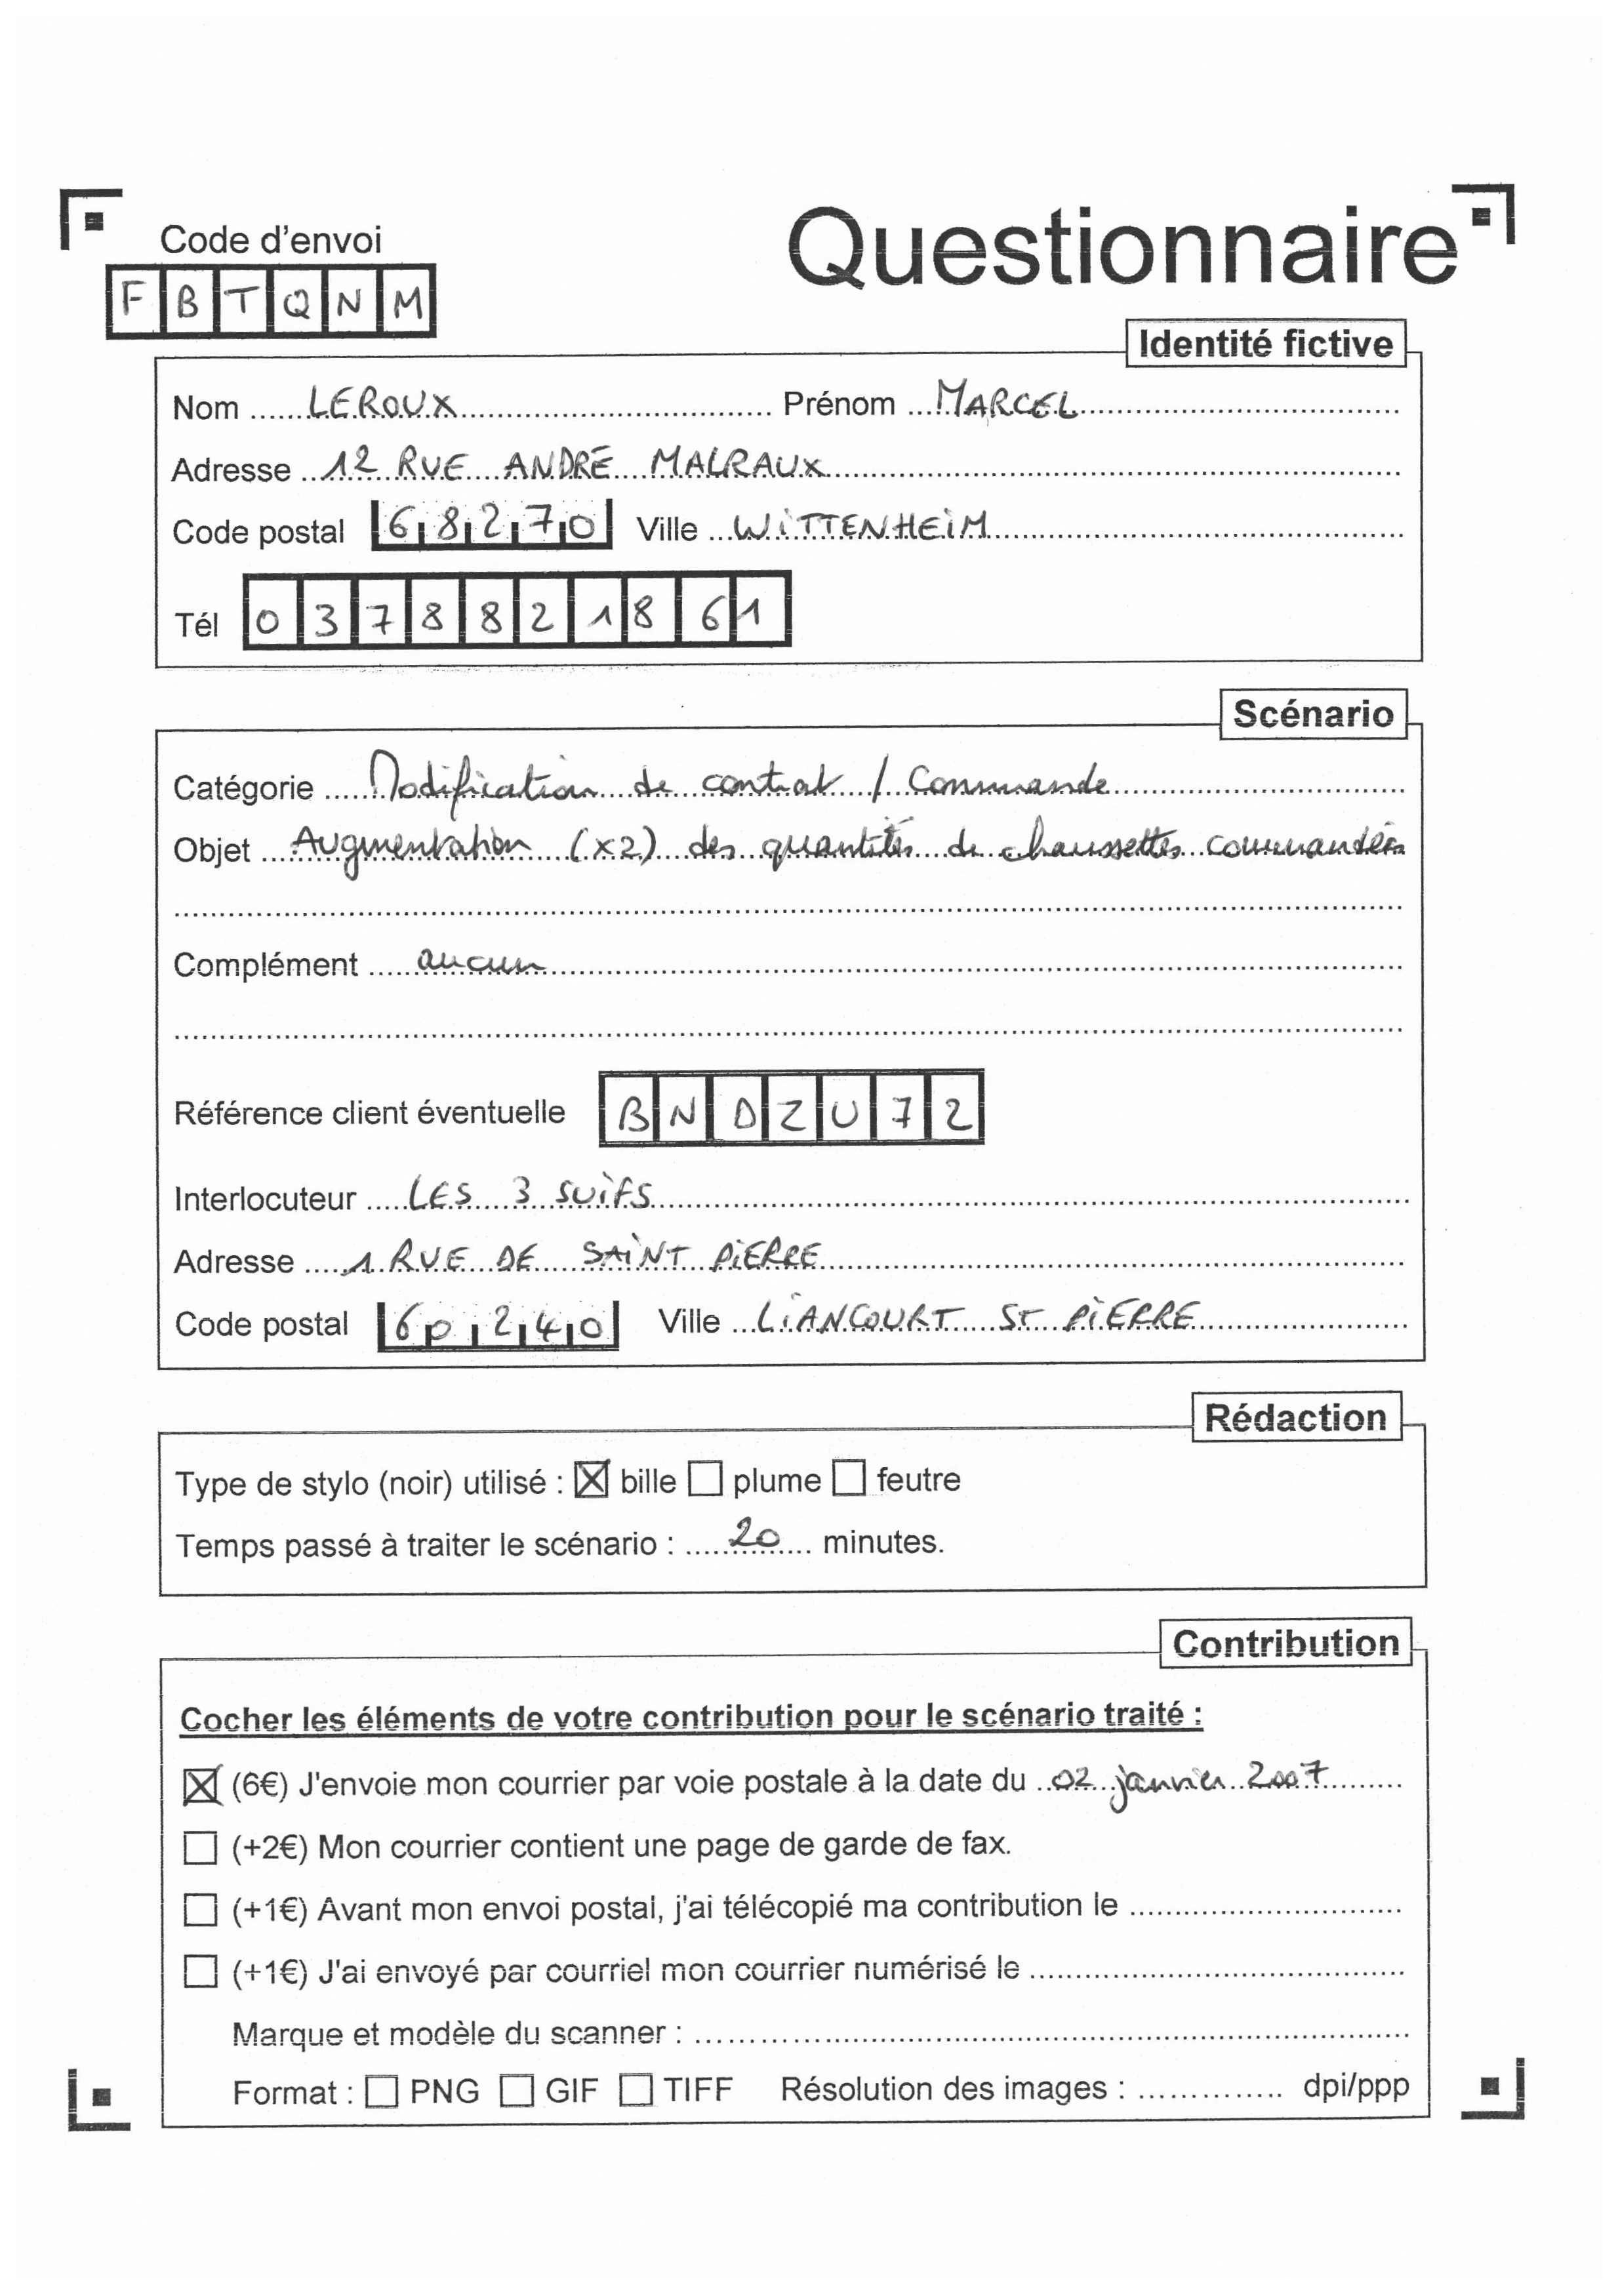 Code d'envoi
Questionnaire
F B T Q N M
Identité fictive
Nom ...... LEROUX ...... Prénom ...... MARCEL ......
Adresse ...... 12 RUE ANDRÉ MALRAUX ......
Code postal 68270 Ville ...... WITTENHEIM ......
Tél 0378821861
Scénario
Catégorie ...... Modification de contrat / Commande ......
Objet ...... Augmentation (x2) des quantités de chaussettes commandées
Complément ...... aucun ......
Référence client éventuelle BNDZU72
Interlocuteur ...... LES 3 SUIFS ......
Adresse ...... 1 RUE DE SAINT PIERRE ......
Code postal 60240 Ville ...... LIANCOURT ST PIERRE ......
Rédaction
Type de stylo (noir) utilisé : ☒ bille ☐ plume ☐ feutre
Temps passé à traiter le scénario : ...... 20 ...... minutes.
Contribution
Cocher les éléments de votre contribution pour le scénario traité :
☒ (6€) J'envoie mon courrier par voie postale à la date du ...... 02 janvier 2007 ......
☐ (+2€) Mon courrier contient une page de garde de fax.
☐ (+1€) Avant mon envoi postal, j'ai télécopié ma contribution le ......
☐ (+1€) J'ai envoyé par courriel mon courrier numérisé le ......
Marque et modèle du scanner : ......
Format : ☐ PNG ☐ GIF ☐ TIFF Résolution des images : ...... dpi/ppp